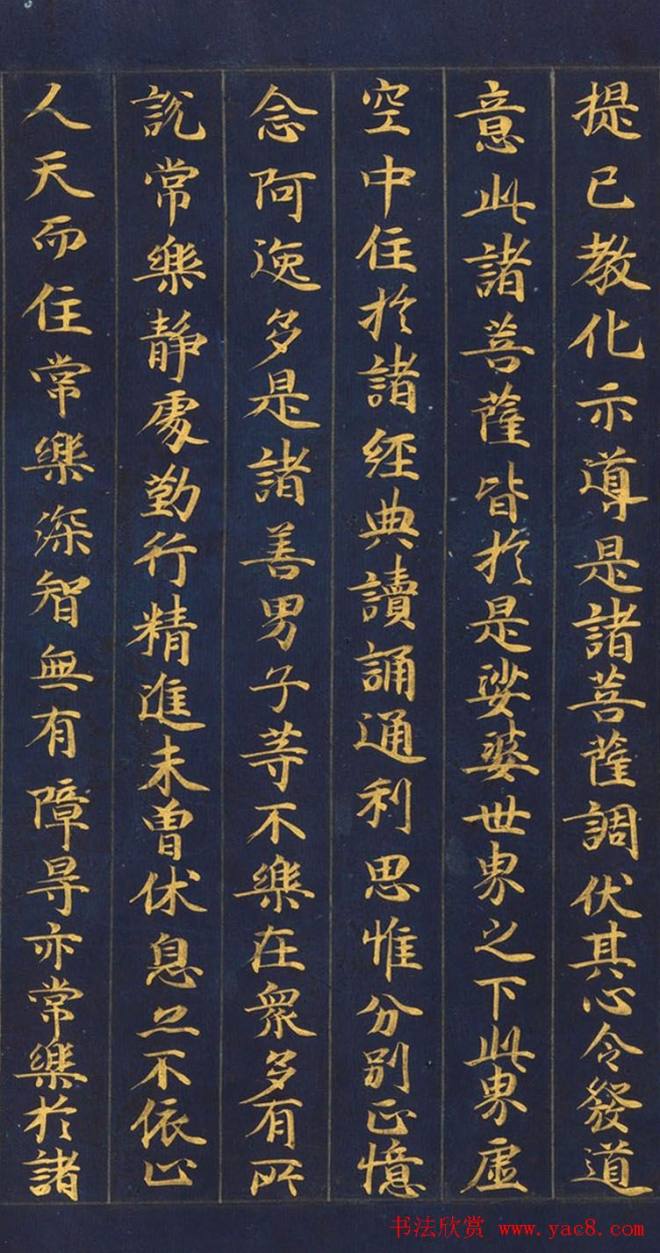 提已教化示導是諸菩薩調伏其心令發道
意此諸菩薩皆於是娑婆世界之下此界虛
空中住於諸經典讀誦通利思惟分別正憶
念阿逸多是諸善男子等不樂在衆多有所
說常樂靜處勤行精進未曾休息亦不依止
人天而住常樂深智無有障㝵亦常樂於諸
书法欣赏 www.yac8.com